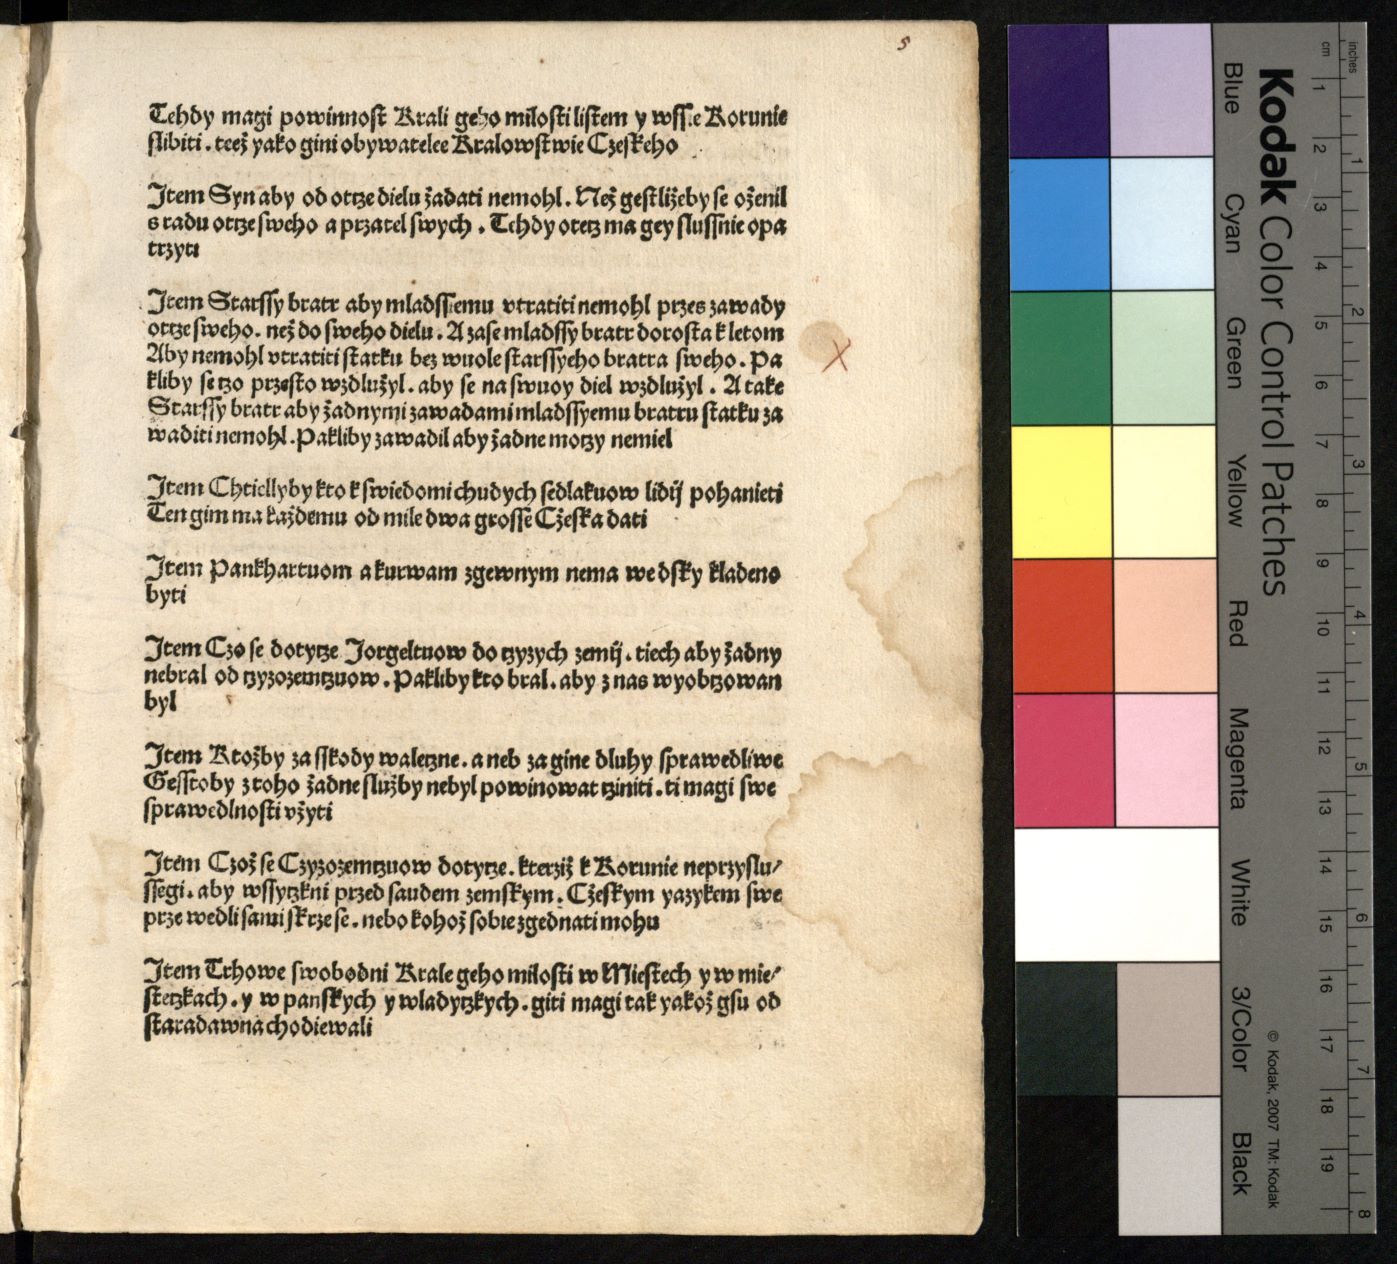 5
Tehdy magi powinnost Krali geho milosti listem y wssie Korunie
slibiti. teez yako gini obywatelee Kralowstwie Czeskeho
Item Syn aby od ottze dielu žadati nemohl. Než gestližeby se oženil
s radu ottze sweho a przatel swych. Tehdy otetz ma gey slussnie opa
trzyti
Item Starssy bratr aby mladssiemu vtratiti nemohl przes zawady
ottze sweho. než do sweho dielu. A zase mladssy bratr dorosta k letom
Aby nemohl vtratiti statku bez wuole starssyeho bratra sweho. Pa
kliby se tzo przesto wzdlužyl. aby se na swuoy diel wzdlužyl. A take
Starssy bratr aby žadnymi zawadami mladssyemu bratru statku za
waditi nemohl. Pakliby zawadil aby žadne motzy nemiel
Item Chtiellyby kto k swiedomi chudych sedlakuow lidij pohanieti
Ten gim ma každemu od mile dwa grosse Cžeska dati
Item Pankhartuom a kurwam zgewnym nema we dsky kladeno
byti
Item Czo se dotytze Jorgeltuow do tzyzych zemij. tiech aby žadny
nebral od tzyzozemtzuow. Pakliby kto bral. aby z nas wyobtzowan
byl
Item Ktožby za sskody waletzne. a neb za gine dluhy sprawedliwe
Gessto by z toho žadne služby nebyl powinowat tziniti. ti magi swe
sprawedlnosti vžyti
Item Czož se Czyzozemtzuow dotytze. kterziž k Korunie neprzyslu/
ssegi. aby wssytzkni przed saudem zemskym. Cžeskym yazykem swe
prze wedli sami skrze se. nebo kohož sobie zgednati mohu
Item Trhowe swobodni Krale geho milosti w Miestech y w mie/
stetzkach. y w panskych y wladytzkych. giti magi tak yakož gsu od
staradawna chodiewali
Kodak Color Control Patches
Blue
Cyan
Green
Yellow
Red
Magenta
White
3/Color
Black
© Kodak, 2007 TM: Kodak
cm
1
2
3
4
5
6
7
8
9
10
11
12
13
14
15
16
17
18
19
inches
1
2
3
4
5
6
7
8